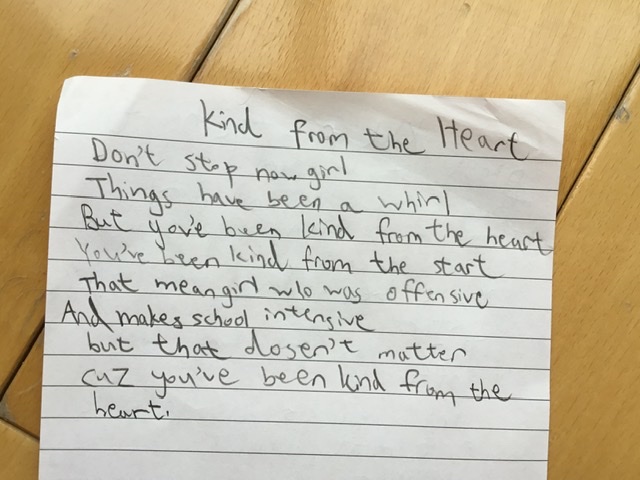 Kind from the Heart
Don't stop now girl
Things have been a whirl
But yov'e been kind from the heart
You've been kind from the start
That mean girl who was offensive
And makes school intensive
but that dosen't matter
cuz you've been kind from the
heart.